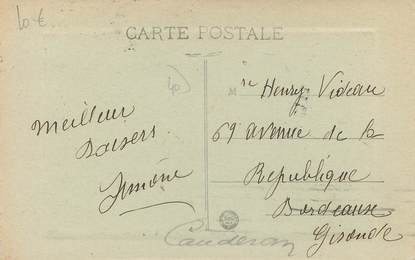 10 €
CARTE POSTALE
40
Meilleur
Baisers
Simone
M re Henry Videau
69 avenue de la
République
Bordeaux
Gironde
Cauderan